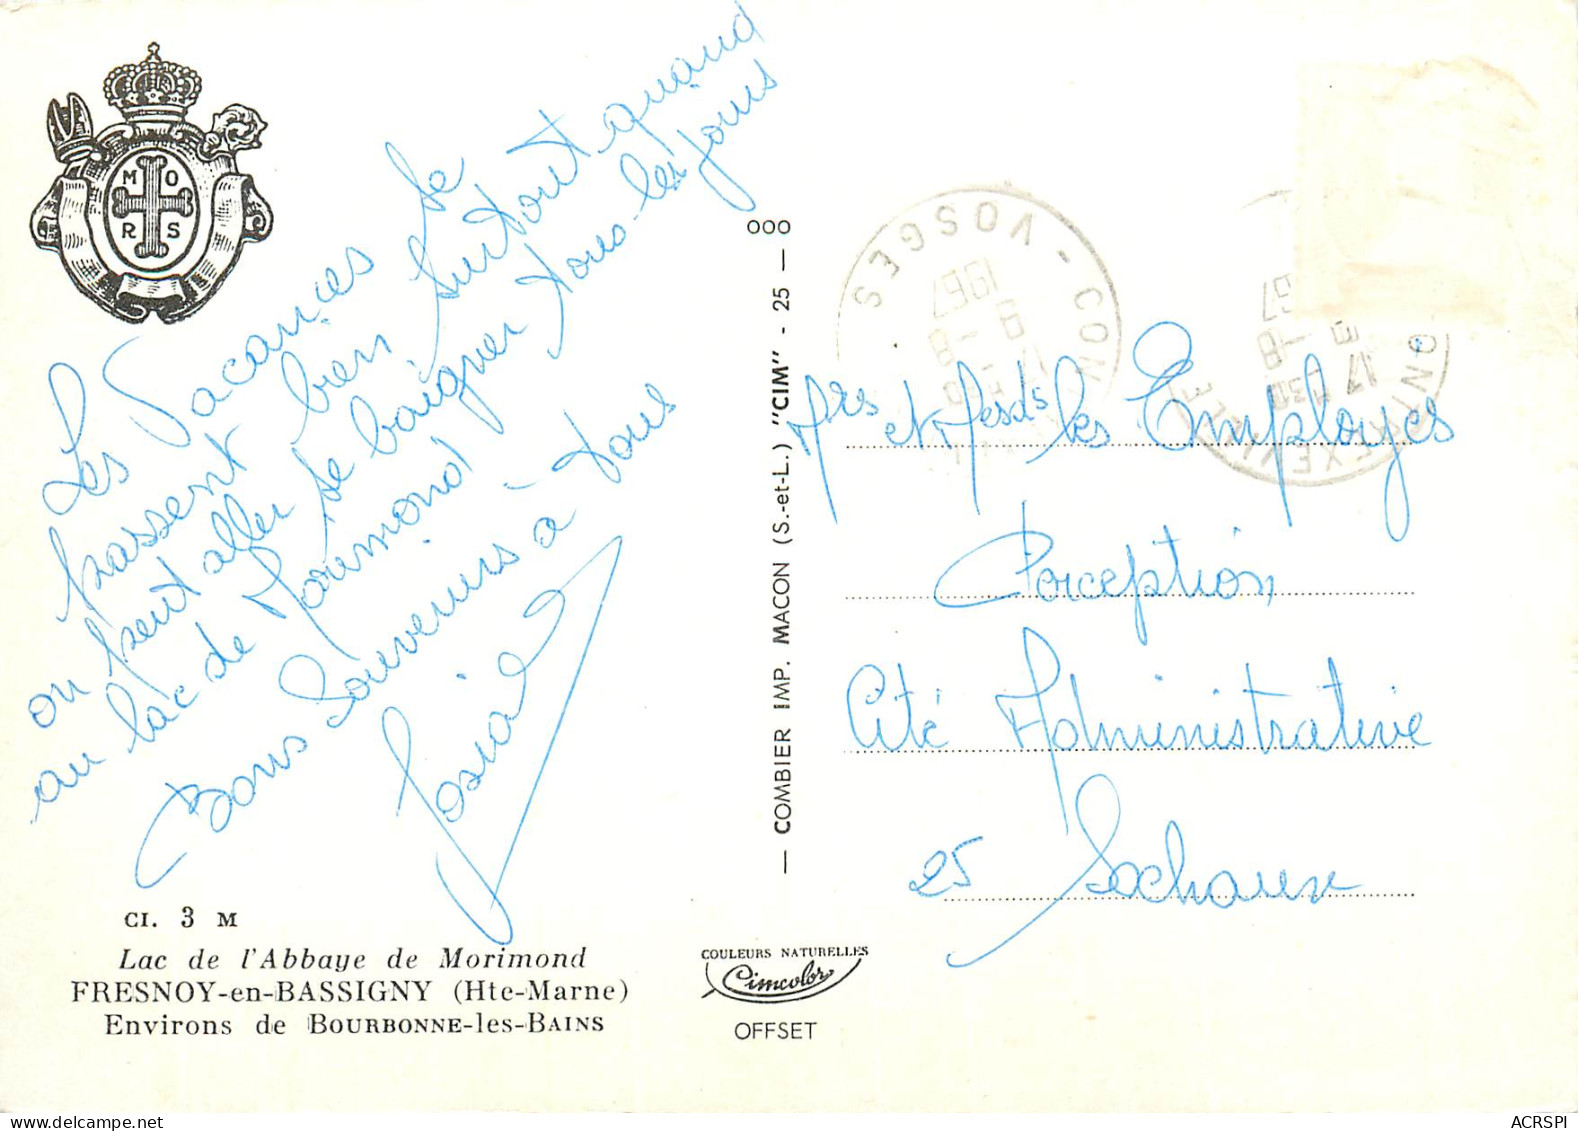 M O
R S
Les Vacances se
passent bien surtout quand
on peut aller se baigner tous les jours
au lac de Morimond
Bons Souvenirs à tous
Josiane
CI. 3 M
Lac de l'Abbaye de Morimond
FRESNOY-en-BASSIGNY (Hte-Marne)
Environs de BOURBONNE-les-BAINS
000
— COMBIER IMP. MACON (S.-et-L.) "CIM" - 25 —
COULEURS NATURELLES
Cimcolor
OFFSET
VOSGES - CON
1967
17 - 8
1967
Mrs et Mesds les Employés
Perception
Cité Administrative
25 Sochaux
ACRSPI